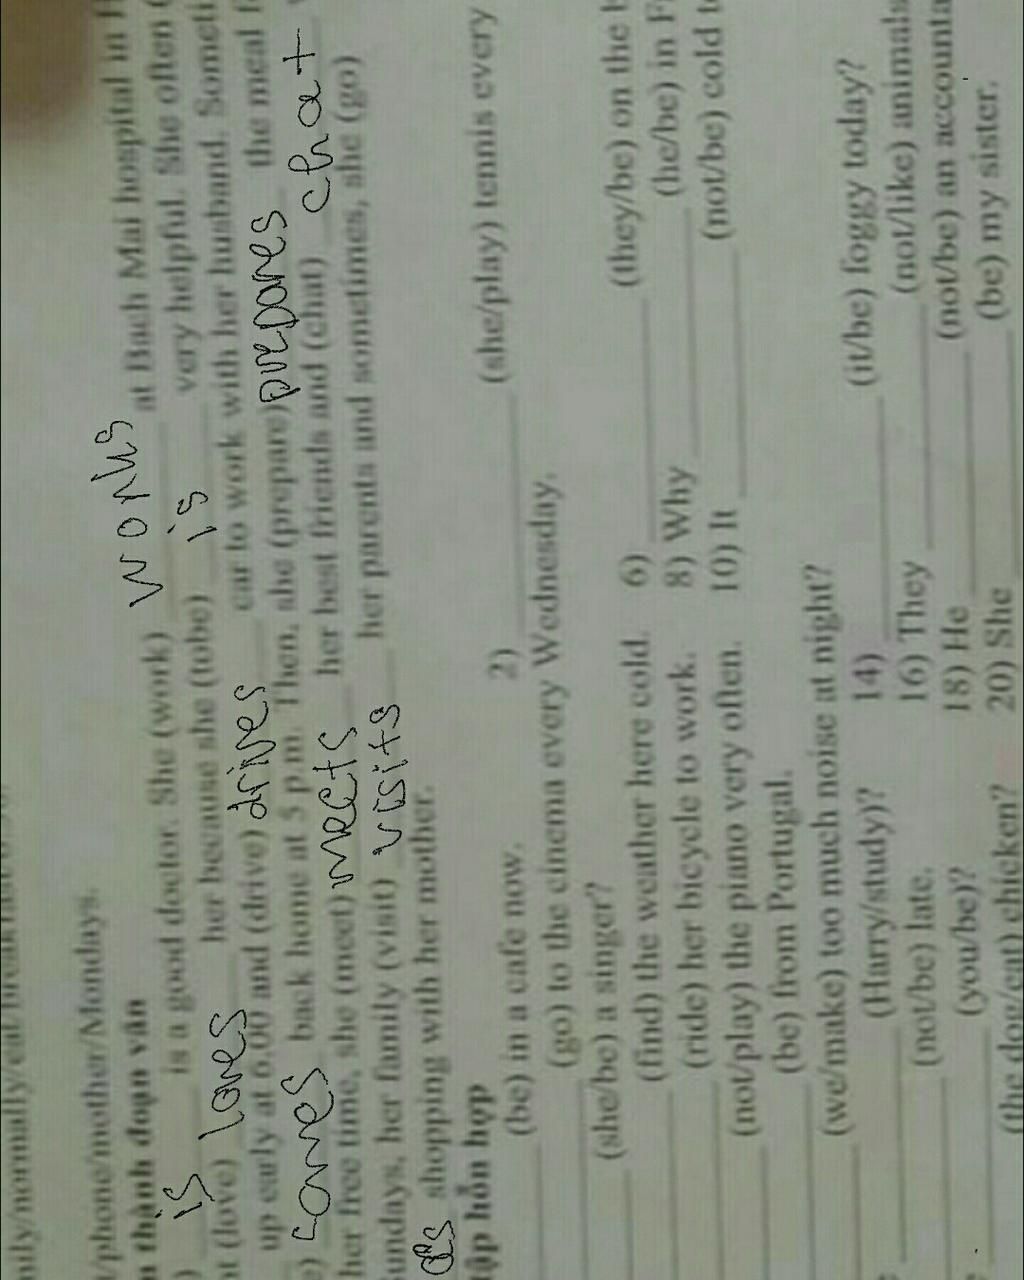 /phone/mother/Mondays.
thành đoạn văn
) is is a good doctor. She (work) works at Bach Mai hospital in H
(love) loves her because she (tobe) is very helpful. She often
up early at 6.00 and (drive) drives car to work with her husband. Someti
) comes back home at 5 p.m. Then, she (prepare) prepares the meal f
her free time, she (meet) meets her best friends and (chat) chat
undays, her family (visit) visits her parents and sometimes, she (go)
shopping with her mother.
tập hỗn hợp
(be) in a cafe now. 2) (she/play) tennis every
(go) to the cinema every Wednesday.
(she/be) a singer?
(find) the weather here cold. 6) (they/be) on the
(ride) her bicycle to work. 8) Why (he/be) in F
(not/play) the piano very often. 10) It (not/be) cold t
(be) from Portugal.
(we/make) too much noise at night?
(Harry/study)? 14) (it/be) foggy today?
(not/be) late. 16) They (not/like) animals
(you/be)? 18) He (not/be) an accounta
(the dog/eat) chicken? 20) She (be) my sister.